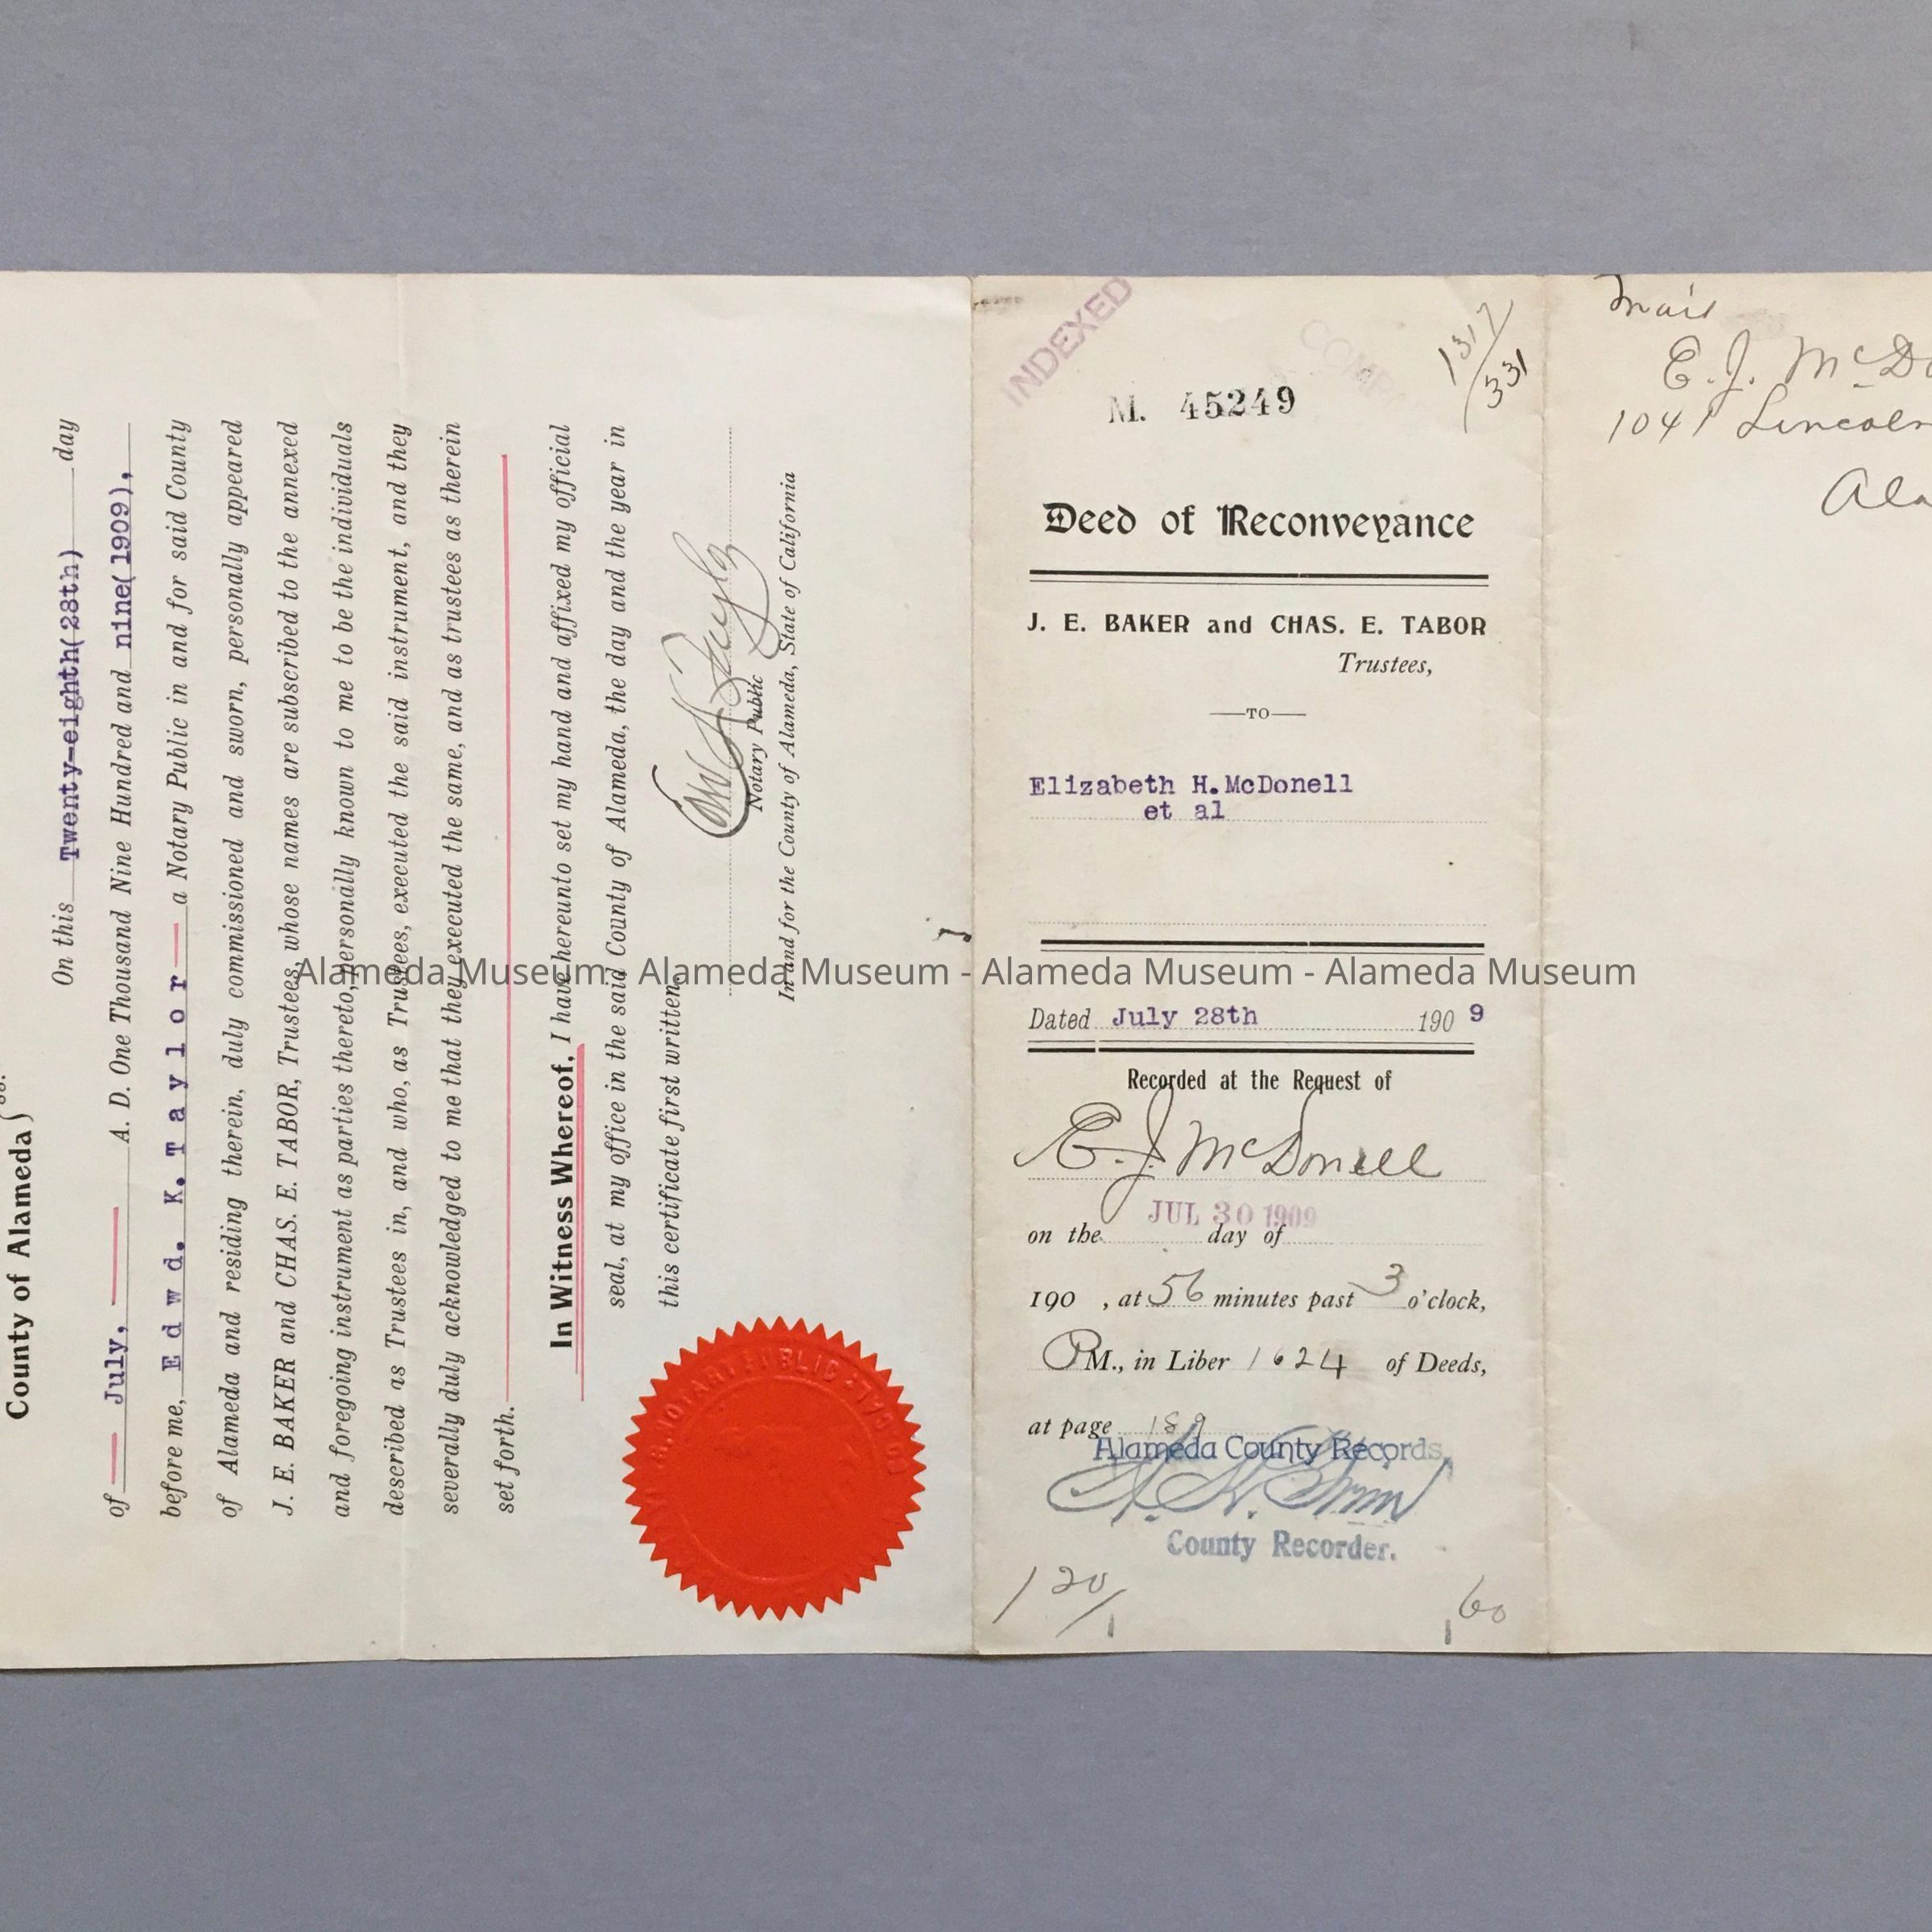 County of Alameda } ss.
On this Twenty-eighth(28th) day
of July, A. D. One Thousand Nine Hundred and nine(1909),
before me, Edwd. K. Taylor a Notary Public in and for said County
of Alameda and residing therein, duly commissioned and sworn, personally appeared
J. E. BAKER and CHAS. E. TABOR, Trustees, whose names are subscribed to the annexed
and foregoing instrument as parties thereto, personally known to me to be the individuals
described as Trustees in, and who, as Trustees, executed the said instrument, and they
severally duly acknowledged to me that they executed the same, and as trustees as therein
set forth.
In Witness Whereof, I have hereunto set my hand and affixed my official
seal, at my office in the said County of Alameda, the day and the year in
this certificate first written.
Notary Public
In and for the County of Alameda, State of California
NOTARY PUBLIC
INDEXED
M. 45249
1317/331
Deed of Reconveyance
J. E. BAKER and CHAS. E. TABOR
Trustees,
TO
Elizabeth H. McDonell
et al
Dated July 28th 1909
Recorded at the Request of
E. J. McDonell
JUL 30 1909
on the day of
190 , at 56 minutes past 3 o'clock,
P M., in Liber 1624 of Deeds,
at page 189
Alameda County Records,
County Recorder.
120/1
1 60
Mail
E. J. McDo
1041 Lincoln
Ala
Alameda Museum - Alameda Museum - Alameda Museum - Alameda Museum